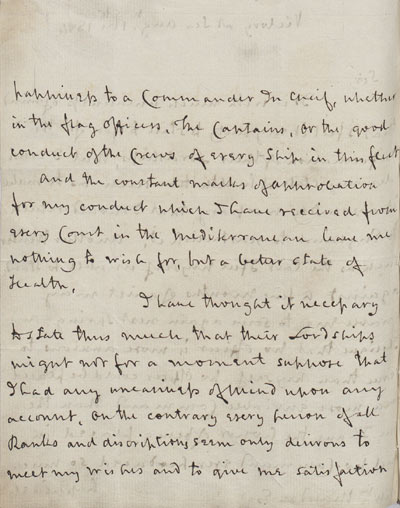 happiness to a Commander In Cheif, whether
in the flag officers, the Captains, or the good
conduct of the Crews of every Ship in this fleet
and the constant marks of approbation
for my conduct which I have received from
every Court in the Mediterranean leave me
nothing to wish for, but a better state of
Health.
I have thought it necessary
to state thus much, that their Lordships
might not for a moment suppose that
I had any uneasiness of mind upon any
account, on the contrary every person of all
Ranks and discriptions seem only desirous to
meet my wishes and to give me satisfaction